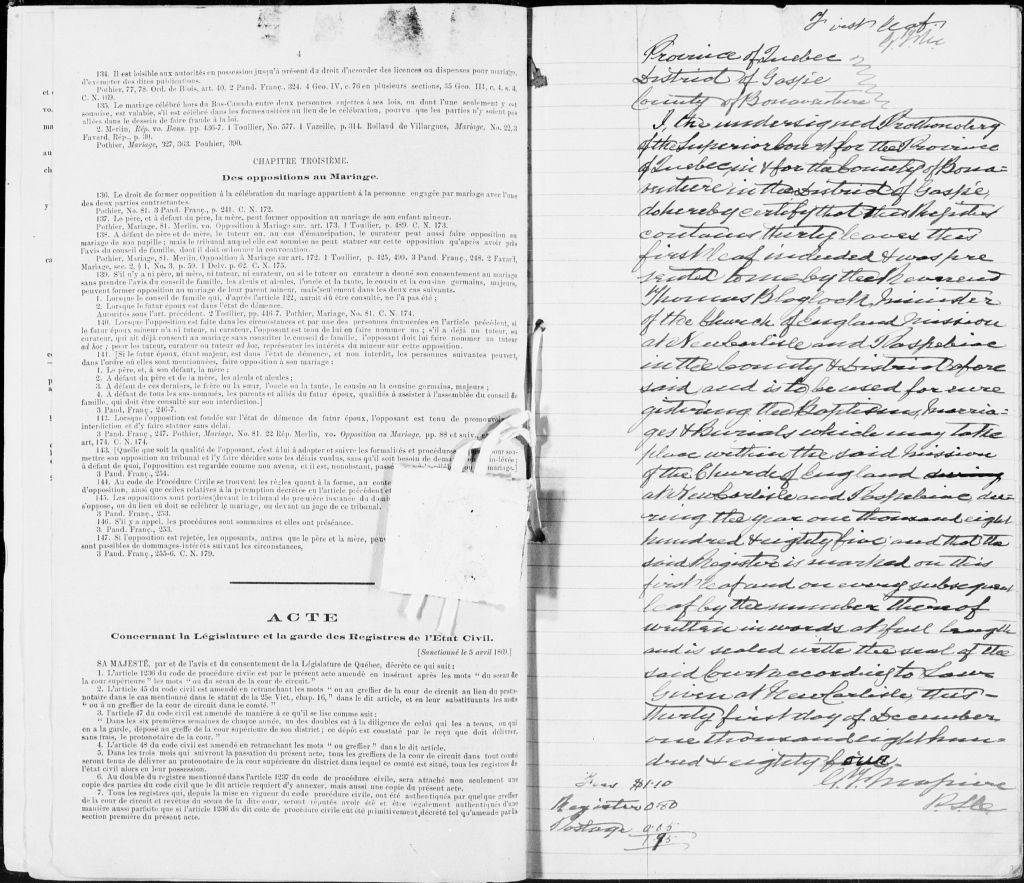 et
vo.
ma
au
ch
y
ca
4
134. Il est loisible aux autorités en possession jusqu'à présent du droit d'accorder des licences ou dispenses pour mariage,
d'exempter des dites publications.
Pothier, 77, 78. Ord. de Blois, art. 40. 2 Pand. Franç. 324. 4 Geo. IV, c. 76 en plusieurs sections, 35 Geo. III, c. 4, s. 4.
C. N. 169.
135. Le mariage célébré hors du Bas-Canada entre deux personnes sujettes à ses lois, ou dont l'une seulement y est
soumise, est valable, s'il est célébré dans les formes usitées au lieu de la célébration, pourvu que les parties n'y soient pas
allées dans le dessein de faire fraude à la loi.
2. Merlin, Rép. vo. Bans. pp. 436-7. 1 Toullier, No. 577. 1 Vazeille, p. 314. Rolland de Villargues, Mariage, No. 22, 3
Favard, Rép., p. 30.
Pothier, Mariage, 327, 363. Pouhier, 390.
CHAPITRE TROISIÈME.
Des oppositions au Mariage.
136. Le droit de former opposition à la célébration du mariage appartient à la personne engagée par mariage avec l'une
des deux parties contractantes.
Pothier, No. 81. 3 Pand. Franç., p. 241. C. N. 172.
137. Le père, et à défaut du père, la mère, peut former opposition au mariage de son enfant mineur.
Pothier, Mariage, 81. Merlin, vo. Opposition à Mariage sur. art. 173. 1 Toullier, p. 489. C. N. 173.
138. A défaut de père et de mère, le tuteur ou, au cas d'émancipation, le curateur peut aussi faire opposition au
mariage de son pupille ; mais le tribunal auquel elle est soumise ne peut statuer sur cette opposition qu'après avoir pris
l'avis du conseil de famille, dont il doit ordonner la convocation.
Pothier, Mariage, 81. Merlin, Opposition à Mariage sur art. 172. 1 Toullier, p. 425, 490. 3 Pand. Franç., 248. 2 Favard,
Mariage, sec. 2, § 1, No. 3, p. 59. 1 Delv. p. 62. C. N. 175.
139. S'il n'y a ni père, ni mère, ni tuteur, ni curateur, ou si le tuteur ou curateur a donné son consentement au mariage
sans prendre l'avis du conseil de famille, les aïeuls et aïeules, l'oncle et la tante, le cousin et la cousine germains, majeurs,
peuvent former opposition au mariage de leur parent mineur, mais seulement dans les deux cas suivants.
1. Lorsque le conseil de famille qui, d'après l'article 122, aurait dû être consulté, ne l'a pas été ;
2. Lorsque le futur époux est dans l'état de démence.
Autorités sous l'art. précédent. 2 Toullier, pp. 446-7. Pothier, Mariage, No. 81. C. N. 174.
140. Lorsque l'opposition est faite dans les circonstances et par une des personnes énumérées en l'article précédent, si
le futur époux mineur n'a ni tuteur, ni curateur, l'opposant est tenu de lui en faire nommer un ; s'il a déjà un tuteur, ou
curateur, qui ait déjà consenti au mariage sans consulter le conseil de famille, l'opposant doit lui faire nommer un tuteur
ad hoc ; pour les tuteur, curateur ou tuteur ad hoc, représenter les intérêts du mineur sur cette opposition.
141. [Si le futur époux, étant majeur, est dans l'état de démence, et non interdit, les personnes suivantes peuvent,
dans l'ordre où elles sont mentionnées, faire opposition à son mariage :
1. Le père, et, à son défaut, la mère ;
2. A défaut du père et de la mère, les aïeuls et aïeules ;
3. A défaut de ces derniers, le frère ou la sœur, l'oncle ou la tante, le cousin ou la cousine germains, majeurs ;
4. A défaut de tous les sus-nommés, les parents et alliés du futur époux, qualifiés à assister à l'assemblée du conseil de
famille, qui doit être consulté sur son interdiction.]
3 Pand. Franç., 246-7.
142. Lorsque l'opposition est fondée sur l'état de démence du futur époux, l'opposant est tenu de promouvoir
interdiction et d'y faire statuer sans délai.
3 Pand. Franç., 247. Pothier, Mariage, No. 81. 22 Rép. Merlin, vo. Opposition au Mariage, pp. 88 et suiv.
art, 174. C. N. 174.
143. [Quelle que soit la qualité de l'opposant, c'est à lui à adopter et suivre les formalités et procédures pour sou-
mettre son opposition au tribunal et l'y faire décider sous les délais voulus, sans qu'il soit besoin de
à défaut de quoi, l'opposition est regardée comme non avenu, et il est, nonobstant, passé mariage.]
3 Pand. Franç., 254.
144. Au code de Procédure Civile se trouvent les règles quant à la forme, au conte
d'opposition, ainsi que celles relatives à la péremption décrétée en l'article précédent et
145. Les oppositions sont portées devant le tribunal de première instance du domi
s'oppose, ou du lieu où doit se célébrer le mariage, ou devant un juge de ce tribunal.
3 Pand. Franç., 253.
146. S'il y a appel, les procédures sont sommaires et elles ont préséance.
3. Pand. Franç., 253.
147. Si l'opposition est rejetée, les opposants, autres que le père et la mère, peu
sont passibles de dommages-intérêts suivant les circonstances,
3 Pand. Franç., 255-6. C. N. 179.
ACTE
Concernant la Législature et la garde des Registres de l'Etat Civil.
[Sanctionné le 5 avril 1869.]
SA MAJESTÉ, par et de l'avis et du consentement de la Législature de Québec, décrète ce qui suit :
1. L'article 1236 du code de procédure civile est par le présent acte amendé en insérant après les mots " du sceau de
la cour supérieure " les mots " ou du sceau de la cour de circuit."
2. L'article 45 du code civil est amendé en retranchant les mots " ou au greffier de la cour de circuit au lieu du proto-
notaire dans le cas mentionné dans le statut de la 25e Vict., chap. 16," dans le dit article, et en leur substituants les mots
" ou à un greffier de la cour de circuit dans le comté."
3. l'article 47 du code civil est amendé de manière à ce qu'il se lise comme suit :
" Dans les six premières semaines de chaque année, un des doubles est à la diligence de celui qui les a tenus, ou qui
en a la garde, déposé au greffe de la cour supérieure de son district ; ce dépôt est constaté par le reçu que doit délivrer,
sans frais, le protonotaire de la cour. "
4. L'article 48 du code civil est amendé en retranchant les mots " on greffier " dans le dit article.
5. Dans les trois mois qui suivront la passation du présent acte, tous les greffiers de la cour de circuit dans tout comté
seront tenus de délivrer au protonotaire de la cour supérieure du district dans lequel ce comté est situé, tous les registres de
l'état civil alors en leur possession.
6. Au double du registre mentionné dans l'article 1237 du code de procédure civile, sera attaché non seulement une
copie des parties du code civil que le dit article requiert d'y annexer, mais aussi une copie du présent acte.
7. Tous les registres qui, depuis la mise en vigueur du code procédure civile, ont été authentiqués par quelque greffier
de la cour de circuit et revêtus du sceau de la dite cour, seront réputés avoir été et être légalement authentiqués d'une
manière aussi parfaite que si l'article 1236 du dit code de procédure civile eût été primitivement décrété tel qu'amendé par la
section première du présent acte.
First leaf
Province of Quebec
District of Gaspé
County of Bonaventure
I, the undersigned Prothonotary
of the Superior Court for the Province
of Quebec in & for the County of Bona-
venture in the District of Gaspé
do hereby certify that this Register
contains thirty leaves this
first leaf included & was pre
sented to me by the Reverend
Thomas Blaylock Minister
of the Church of England Mission
at New Carlisle and Paspebiac
in the County & District afore
said and is to be used for enre
gistering the Baptisms, Marria-
ges & Burials which may take
place within the said Mission
of the Church of England
at New Carlisle and Paspebiac du-
ring the year one thousand eight
hundred & eighty five and that the
said Register is marked on this
first leaf and on every subsequent
leaf by the number thereof
written in words at full length
and is sealed with the seal of the
said Court according to Law
Given at New Carlisle this
thirty first day of December
one thousand eight hun-
dred & eighty four
P.S.C.
Fees $1.10
Register 0.80
Postage 0.05
1.95